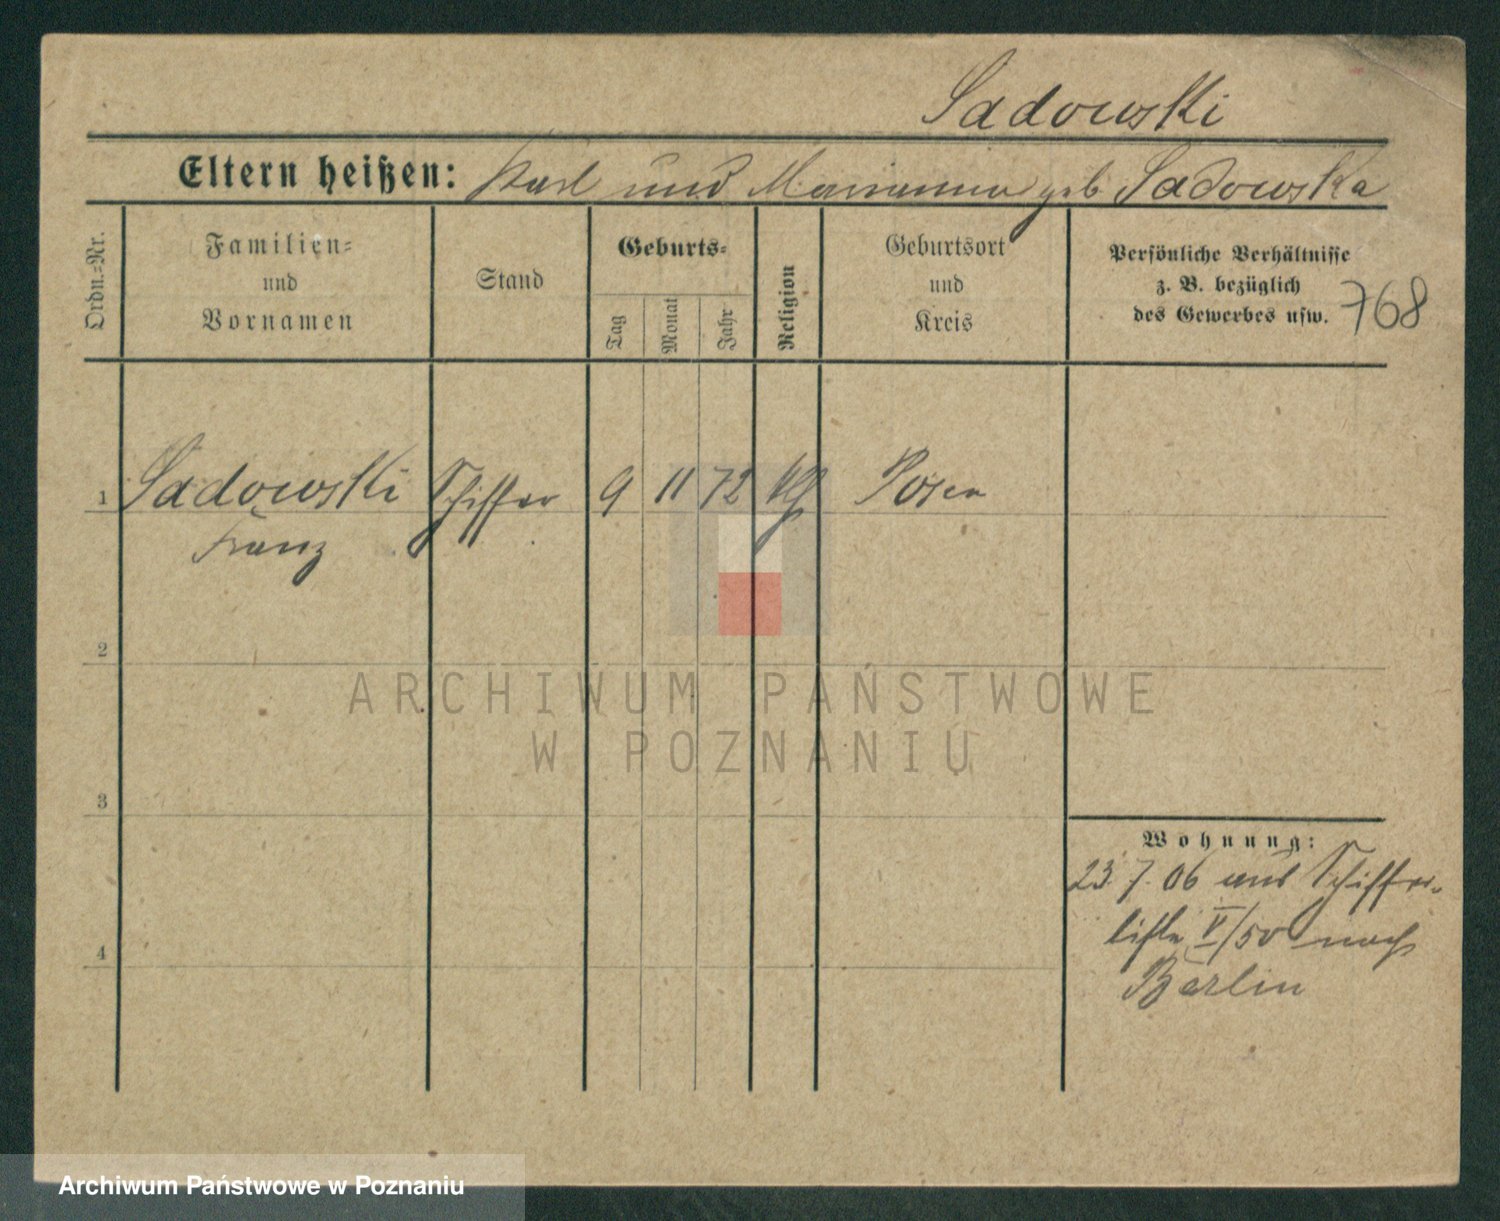 Sadowski
Eltern heißen: Karl und Marianna geb Sadowska
Ordn.=Nr.
Familien=
und
Vornamen
Stand
Geburts=
Tag
Monat
Jahr
Religion
Geburtsort
und
Kreis
Persönliche Verhältnisse
z. B. bezüglich
des Gewerbes usw.
768
1 Sadowski Schiffer 9 11 72 kth Posen
Franz
2
3
4
Wohnung:
23. 7. 06 aus Schiffer-
liste V/50 nach
Berlin
ARCHIWUM PAŃSTWOWE
W POZNANIU
Archiwum Państwowe w Poznaniu